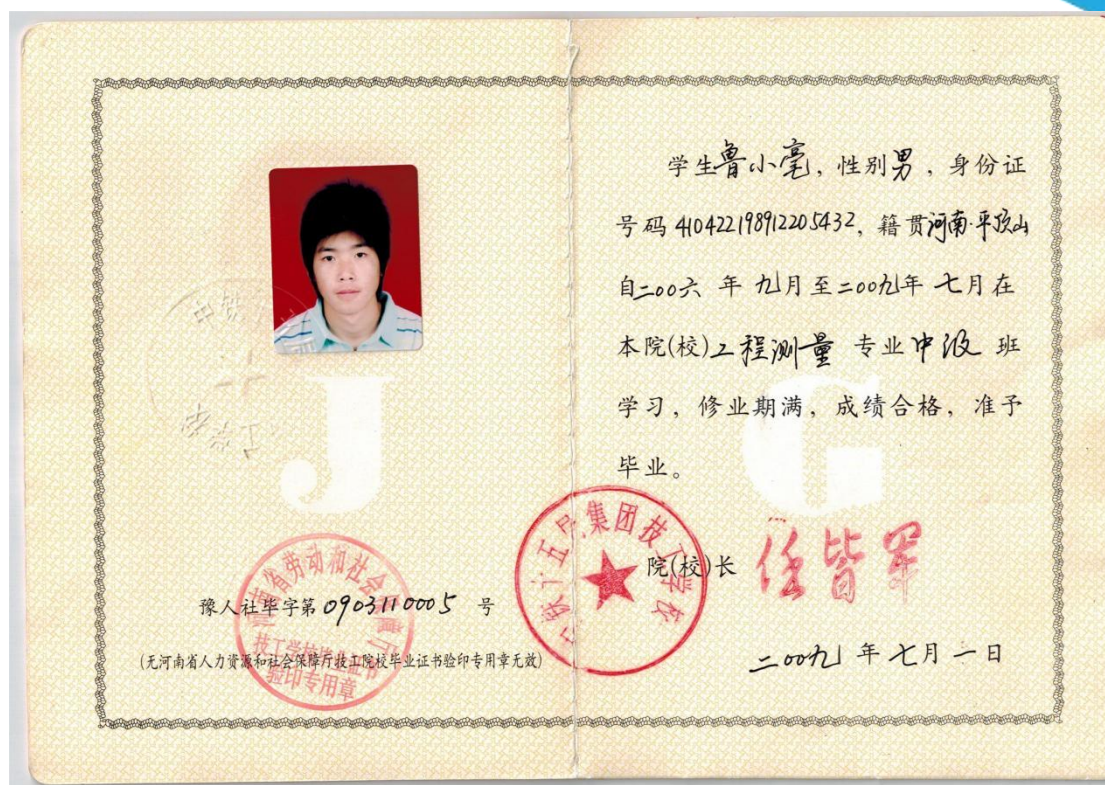 豫人社毕字第0903110005 号
(无河南省人力资源和社会保障厅技工院校毕业证书验印专用章无效)
河南省劳动和社会保障厅
技工学校毕业证书
验印专用章
J
G
学生鲁小毫，性别男，身份证
号码410422198912205432，籍贯河南·平顶山
自二00六 年 九月至二00九年 七月在
本院(校)工程测量 专业中级 班
学习，修业期满，成绩合格，准予
毕业。
院(校)长 任皆军
中铁十五局集团技工学校
二00九 年 七月 一日